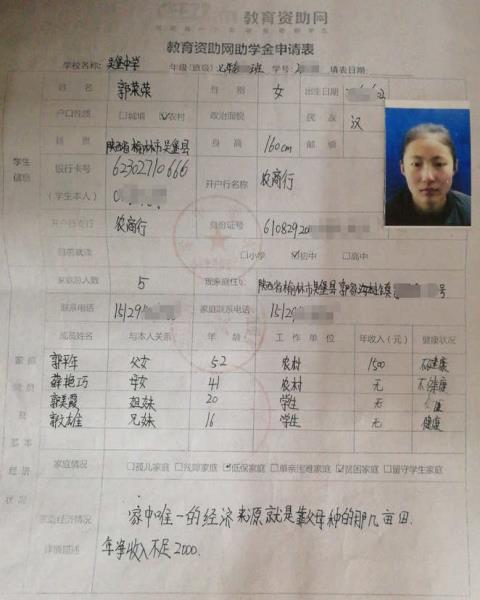 教育资助网
教育资助网助学金申请表
学校名称: 吴堡中学 年级(班级) 班 学号: 填表日期:
姓 名 郭荣荣 性 别 女 出生日期
户口性质 □城镇 ☑农村 政治面貌 民 族 汉
籍 贯 陕西省榆林市吴堡县 身 高 160cm 邮 编
学生信息
银行卡号 62302710666 开户行名称 农商行
(学生本人) 0
开户行支行 农商行 身份证号 61082920
目前就读 □小学 ☑初中 □高中
家庭总人数 5 现家庭住址 陕西省榆林市吴堡县郭家 号
联系电话 15129 家庭联系电话 15129
成员姓名 与本人关系 年 龄 工 作 单 位 年收入(元) 健康状况
郭平年 父女 52 农村 1500 不健康
薛艳巧 母女 41 农村 无 不健康
郭美霞 姐妹 20 学生 无
兄妹 16 学生 无 健康
家庭成员及基本经济状况
家庭情况 □孤儿家庭 □残障家庭 ☑低保家庭 □单亲困难家庭 ☑贫困家庭 □留守学生家庭
家庭经济情况
详细描述
家中唯一的经济来源就是靠父母种的那几亩田.
年净收入不足2000.